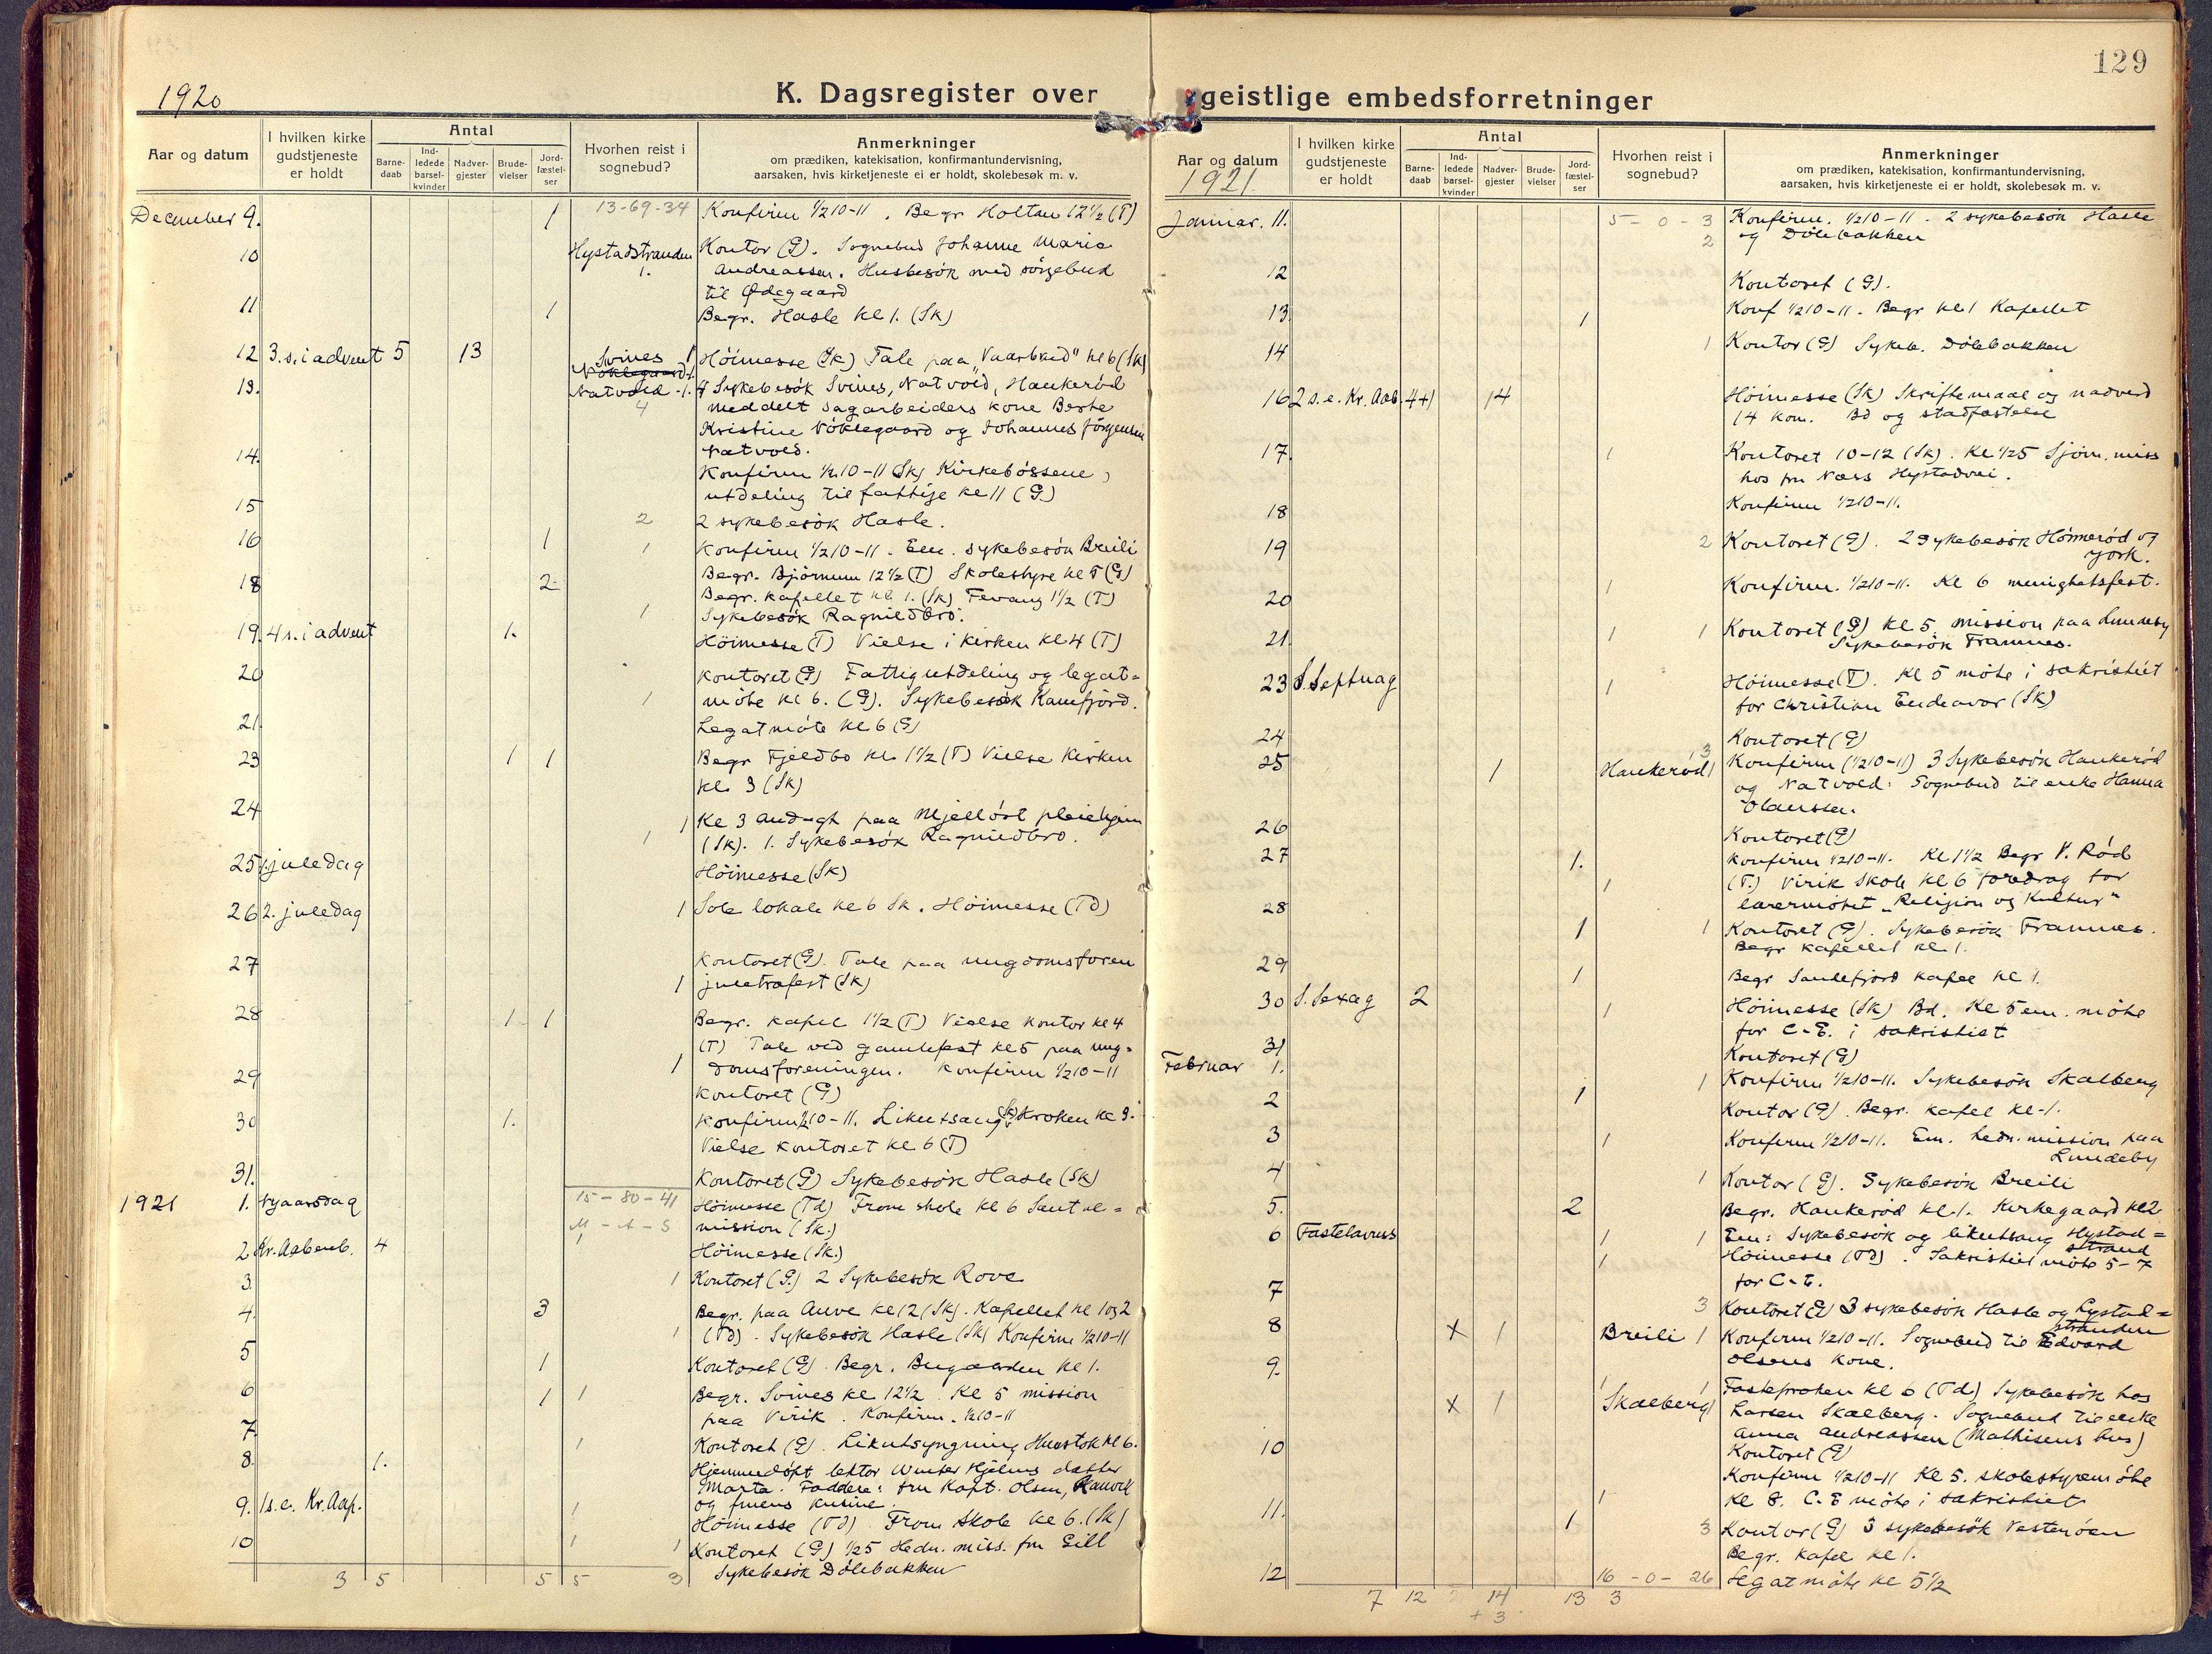 129
1920
K. Dagsregister over geistlige embedsforretninger
Aar og datum
I hvilken kirke gudstjeneste er holdt
Antal
Barne-daab
Ind-ledede barsel-kvinder
Nadver-gjester
Brude-vielser
Jord-fæstel-ser
Hvorhen reist i sognebud?
Anmerkninger
om prædiken, katekisation, konfirmantundervisning,
aarsaken, hvis kirketjeneste ei er holdt, skolebesøk m. v.
December 9. 1 13-69-34 Konfirm ½10-11. Begr Holtan 12½ (T)
10 Hystadstranden 1. Kontor (G). Sognebud Johanne Marie
Andreassen. Husbesök med sörgebud
til Ödegaard
11 1 Begr. Hasle kl 1. (Sk)
12 3. s. i advent 5 13 Svines 1 Höimesse (Sk) Tale paa „Vaarbud" kl 6 (Sk)
13. Natvold - 1. 4 Sykebesök Svines, Natvold, Haukeröd
4 meddelt sagarbeiders kone Berte
Kristine Vöklegaard og Johannes Jörgensen
Natvold.
14. Konfirm ½10-11 (Sk) Kirkebössene,
utdeling til fattige kl 11 (G)
15 2 2 sykebesök Hasle.
16 1 1 Konfirm ½10-11. Em. sykebesök Breili
Begr. Björnum 12½ (T) Skolestyre kl 5 (G)
18 2 Begr. kapellet kl. 1. (Sk) Fevang 1½ (T)
1 Sykebesök Ragnildbro.
19. 4 s. i advent 1. Höimesse (T) Vielse i kirken kl 4 (T)
20 Kontoret (G) Fattigutdeling og legat-
1 möte kl 6. (G). Sykebesök Kamfjord.
21. Legatmöte kl 6 (G)
23 1 1 Begr Fjeldbo kl. 1½ (T) Vielse Kirken
kl. 3 (Sk)
24 1 Kl 3 andagt paa Mjellöst pleiehjem
1 (Sk). 1. Sykebesök Ragnildbro.
25 1. juledag Höimesse (Sk)
26 2. juledag 1 Sole lokale kl 6 Sk. Höimesse (Td)
27 Kontoret (G). Tale paa ungdomsforen
1 juletrefest (Sk)
28 1 1 Begr. kapel 1½ (T) Vielse kontor kl 4
(T) Tale ved gamlefest kl 5 paa ung-
1 domsforeningen. Konfirm ½10-11
29 Kontoret (G)
30 1. Konfirm ½10-11. Likutsang (Sk) Kroken kl 9.
Vielse kontoret kl 6 (T)
31. Kontoret (G) Sykebesök Hasle (Sk)
15-80-41
1921 1. Nyaarsdag Höimesse (Td) From skole kl 6 Santal-
M - A - S mission (Sk.)
2 Kr. Aabenb. 4 Höimesse (Sk.)
3 1 Kontoret (G.) 2 Sykebesök Rove
4. 3 Begr. paa Auve kl 12 (Sk). Kapellet kl 1 og 2
1 (Td). Sykebesök Hasle (Sk) Konfirm ½10-11
5 1 Kontoret (G). Begr. Bugaarden kl 1.
6 1 1 Begr. Svines kl 12½. Kl 5 mission
paa Virik. Konfirm. ½10-11
7 1 Kontoret (G). Likutsyngning Huvstok kl 6.
8. 1. Hjemmedöpt lektor Winter Hjelms datter
Marta. Faddere: fru kapt. Olsen, Ranvik
og fruens kusine.
9. 1 s. e. Kr. Aap. 1 Höimesse (Td). From skole kl 6. (Sk)
10 1 1 Kontoret (G) ½5 Hedn. miss. fru Gill
Sykebesök Dölebakken
3 5 5 5 3
Aar og datum
1921.
I hvilken kirke gudstjeneste er holdt
Antal
Barne-daab
Ind-ledede barsel-kvinder
Nadver-gjester
Brude-vielser
Jord-fæstel-ser
Hvorhen reist i sognebud?
Anmerkninger
om prædiken, katekisation, konfirmantundervisning,
aarsaken, hvis kirketjeneste ei er holdt, skolebesøk m. v.
Januar. 11. 5 - 0 - 3 Konfirm. ½10-11. 2 sykebesök Hasle
2 og Dölebakken
12 Kontoret (G).
13. 1 Konf ½10-11. Begr kl 1 Kapellet
14 1 Kontor (G) Sykeb. Dölebakken
16 2 s. e. Kr. Aab. 4+1 14 Höimesse (Sk) Skriftemaal og nadverd
14 kom. Bd og stadfæstelse
17. 1 Kontoret 10-12 (Sk). Kl ½5 Sjöm. miss
hos fru Næss Hystadvei.
18 Konfirm ½10-11.
19 2 Kontoret (G). 2 Sykebesök Hönneröd og
York.
20 1 Konfirm. ½10-11. Kl 6 menighetsfest.
21. 1 1 Kontoret (G) kl 5 mission paa Lundeby
Sykebesök Framnes.
23 S. Septuag 1 Höimesse (T). Kl 5 möte i sakristiet
for Christian Endeavor (Sk)
24 Kontoret (G)
25 1 Haukeröd 1 3 Konfirm (½10-11) 3 Sykebesök Haukeröd
og Natvold. Sognebud til enke Hanna
Olaussen.
26 Kontoret (G)
27 1. Konfirm ½10-11. Kl 1½ Begr V. Röd
1 (T.) Virik Skole kl 6 foredrag for
lærermötet „Religion og Kultur"
28 1 1 Kontoret (G). Sykebesök Framnes.
Begr kapellet kl. 1.
29 1 Begr Sandefjord kapel kl 1.
30 S. Sexag 2 1 Höimesse (Sk) Bd. Kl 5 em. möte
for C.-E. i sakristiet
31 Kontoret (G)
Februar 1. 1 Konfirm ½10-11. Sykebesök Skalberg
2 1 Kontor (G). Begr. kapel kl-1.
3 1 Konfirm ½10-11. Em. hedn. mission paa
Lundeby
4 1 Kontor (G). Sykebesök Breili
5. 2 Begr. Haukeröd kl. 1. Kirkegaard kl 2
1 1 Em: Sykebesök og likutsang Hystad-
strand
6 Fastelavnss 1 Höimesse (Td). Sakristiet möte 5-7
for C.-E.
7 3 Kontoret (G) 3 sykebesök Hasle og Hystad-
stranden
8 X 1 Breili 1 Konfirm ½10-11. Sognebud til Edvard
Olsens kone.
9. X 1 Skalberg 1 Fasteprœken kl 6 (Td) Sykebesök hos
Larsen Skalberg. Sognebud til enke
Anna Andreassen (Mathisens hus)
10 Kontoret (G)
Konfirm ½10-11 Kl 5. skolestyremöte
1 kl 8. C. E möte i sakristiet
11. 1 3 Kontor (G) 3 sykebesök Vesteröen
Begr. kapel kl 1.
12 16 - 0 - 26 Legatmöte kl 5½
7 12 14 13 3
+ 3